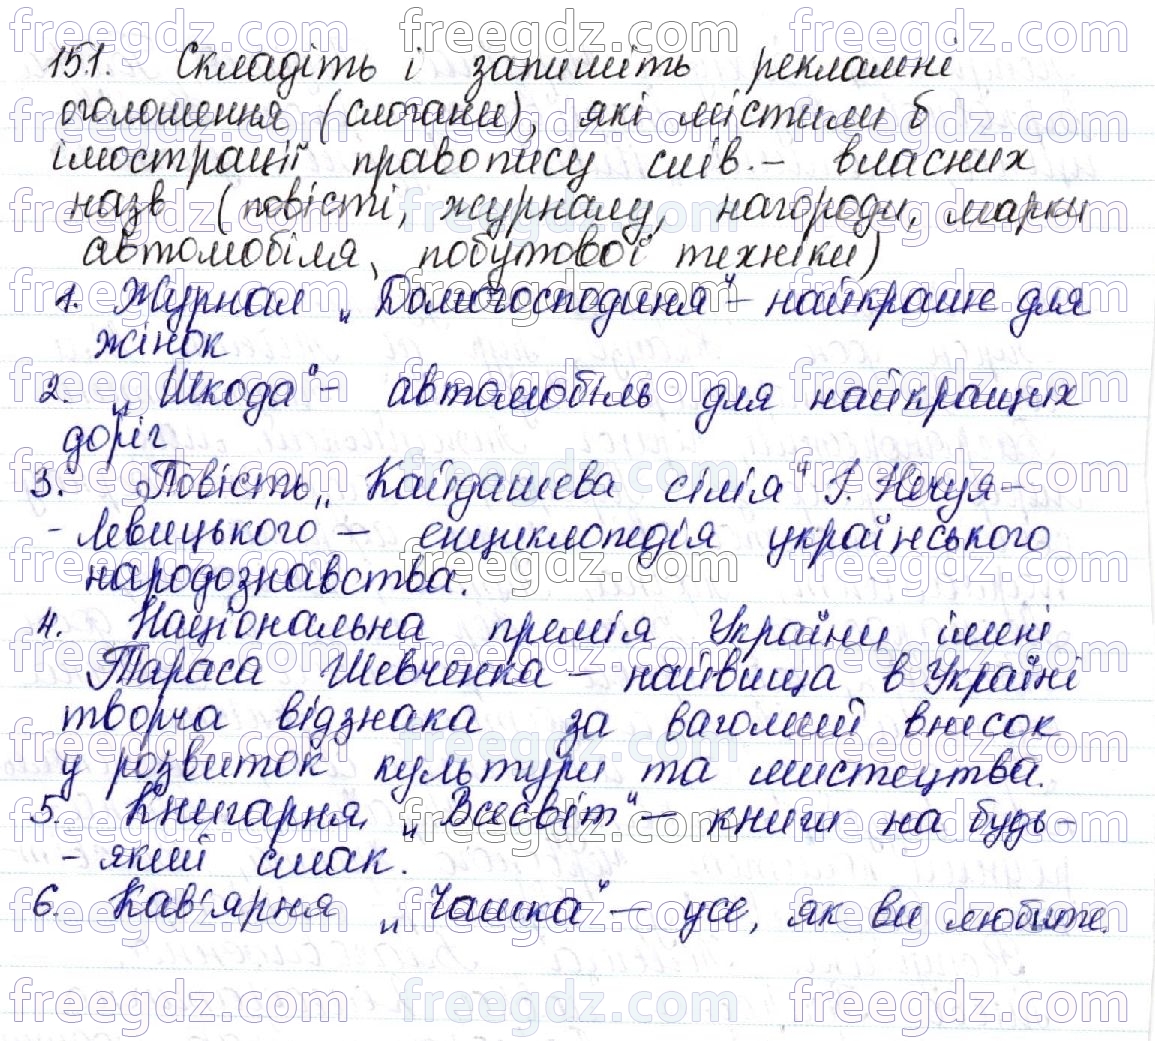 151. Складіть і запишіть рекламні
оголошення (слогани), які містили б
ілюстрації правопису слів - власних
назв (повісті, журналу, нагороди, марки
автомобіля, побутової техніки)
1. Журнал „Домогосподиня" - найкраще для
жінок
2. „Шкода" - автомобіль для найкращих
доріг
3. Повість „Кайдашева сім'я" І. Нечуя-
-Левицького - енциклопедія українського
народознавства.
4. Національна премія України імені
Тараса Шевченка - найвища в Україні
творча відзнака за вагомий внесок
у розвиток культури та мистецтва.
5. Книгарня „Всесвіт" - книги на будь-
-який смак.
6. Кав'ярня „Чашка" - усе, як ви любите.
freegdz.com